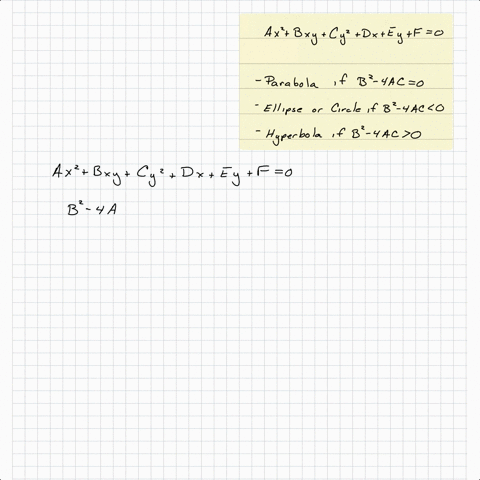 Ax²+Bxy+Cy²+Dx+Ey+F=0
- Parabola if B²-4AC=0
- Ellipse or Circle if B²-4AC<0
- Hyperbola if B²-4AC>0
Ax²+Bxy+Cy²+Dx+Ey+F=0
B²-4A